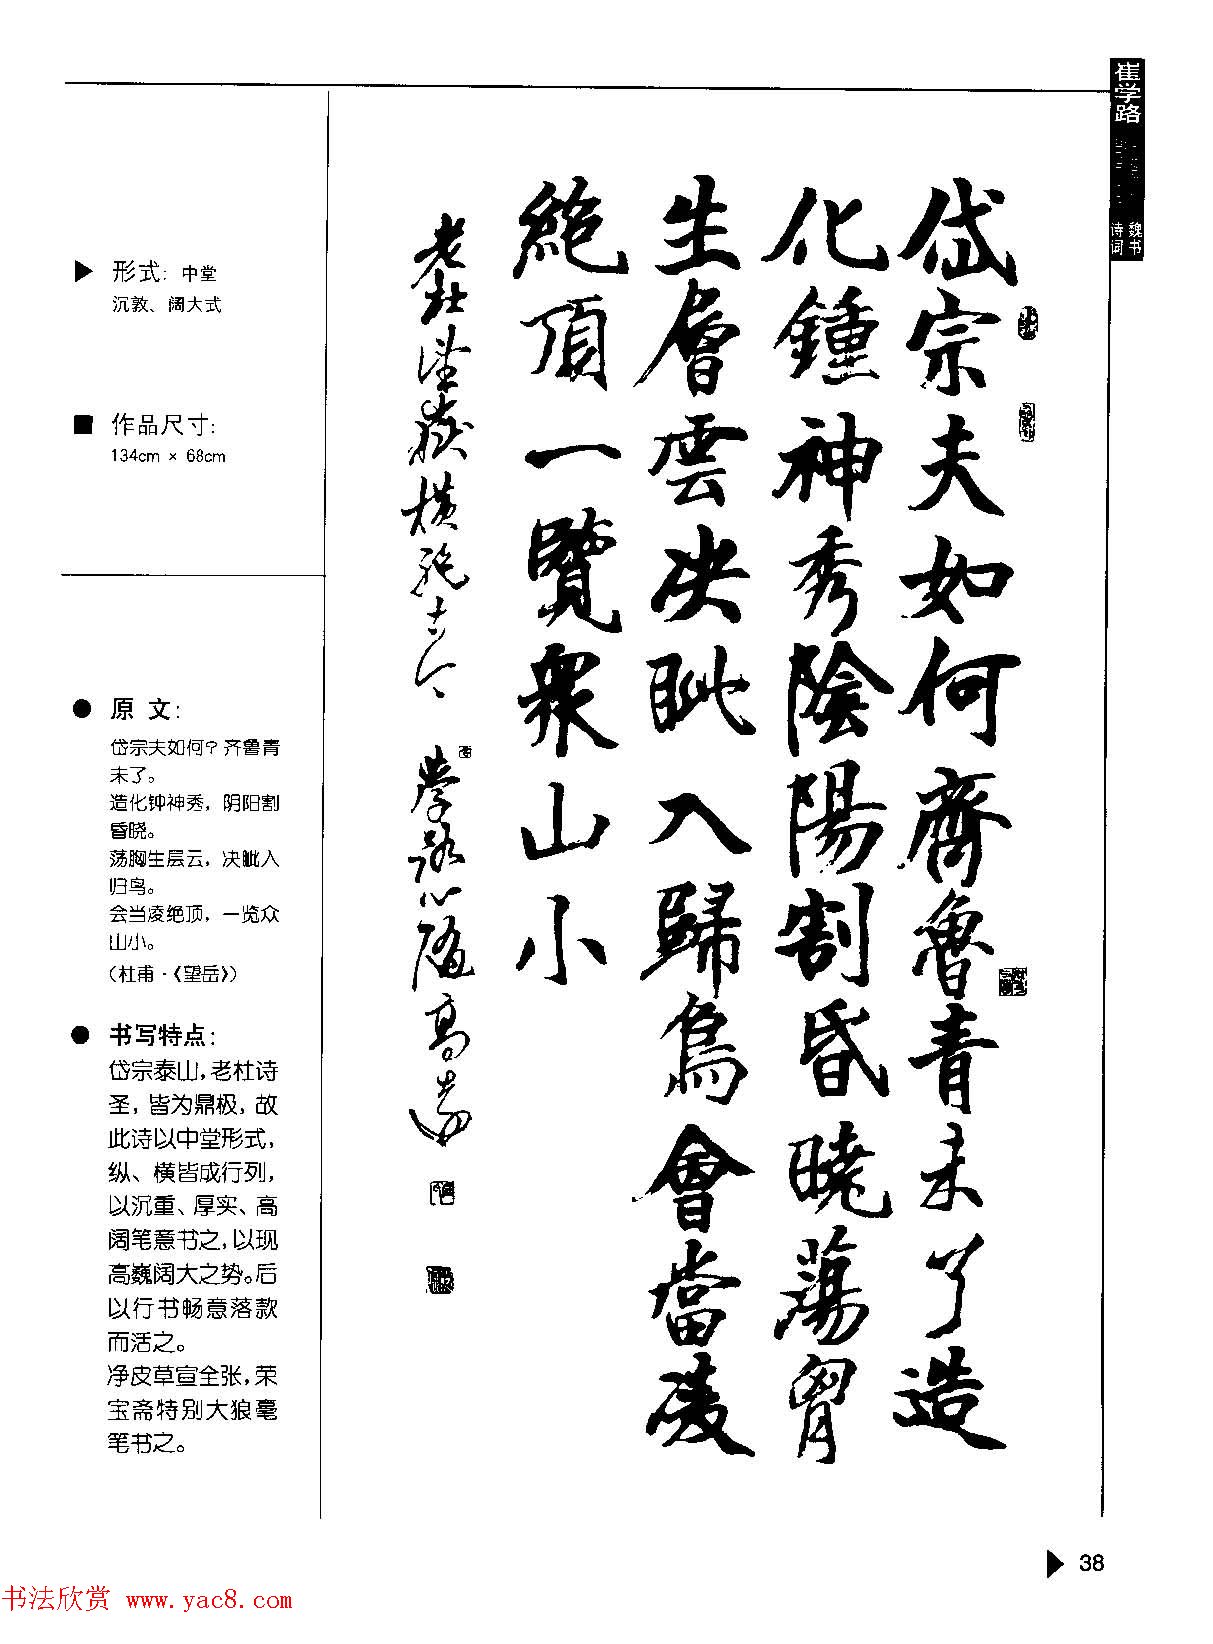 崔学路
魏书
诗词
形式: 中堂
沉敦、阔大式
作品尺寸:
134cm × 68cm
原 文:
岱宗夫如何? 齐鲁青
未了。
造化钟神秀, 阴阳割
昏晓。
荡胸生层云, 决眦入
归鸟。
会当凌绝顶, 一览众
山小。
(杜甫·《望岳》)
书写特点:
岱宗泰山,老杜诗
圣, 皆为鼎极, 故
此诗以中堂形式,
纵、横皆成行列,
以沉重、厚实、高
阔笔意书之, 以现
高巍阔大之势。后
以行书畅意落款
而活之。
净皮草宣全张, 荣
宝斋特别大狼毫
笔书之。
岱宗夫如何齊魯青未了造
化鍾神秀陰陽割昏曉蕩胷
生層雲决眦入歸鳥會當凌
絶頂一覽衆山小
老杜望嶽橫絶古今 學路心隨高海
38
书法欣赏 www.yac8.com